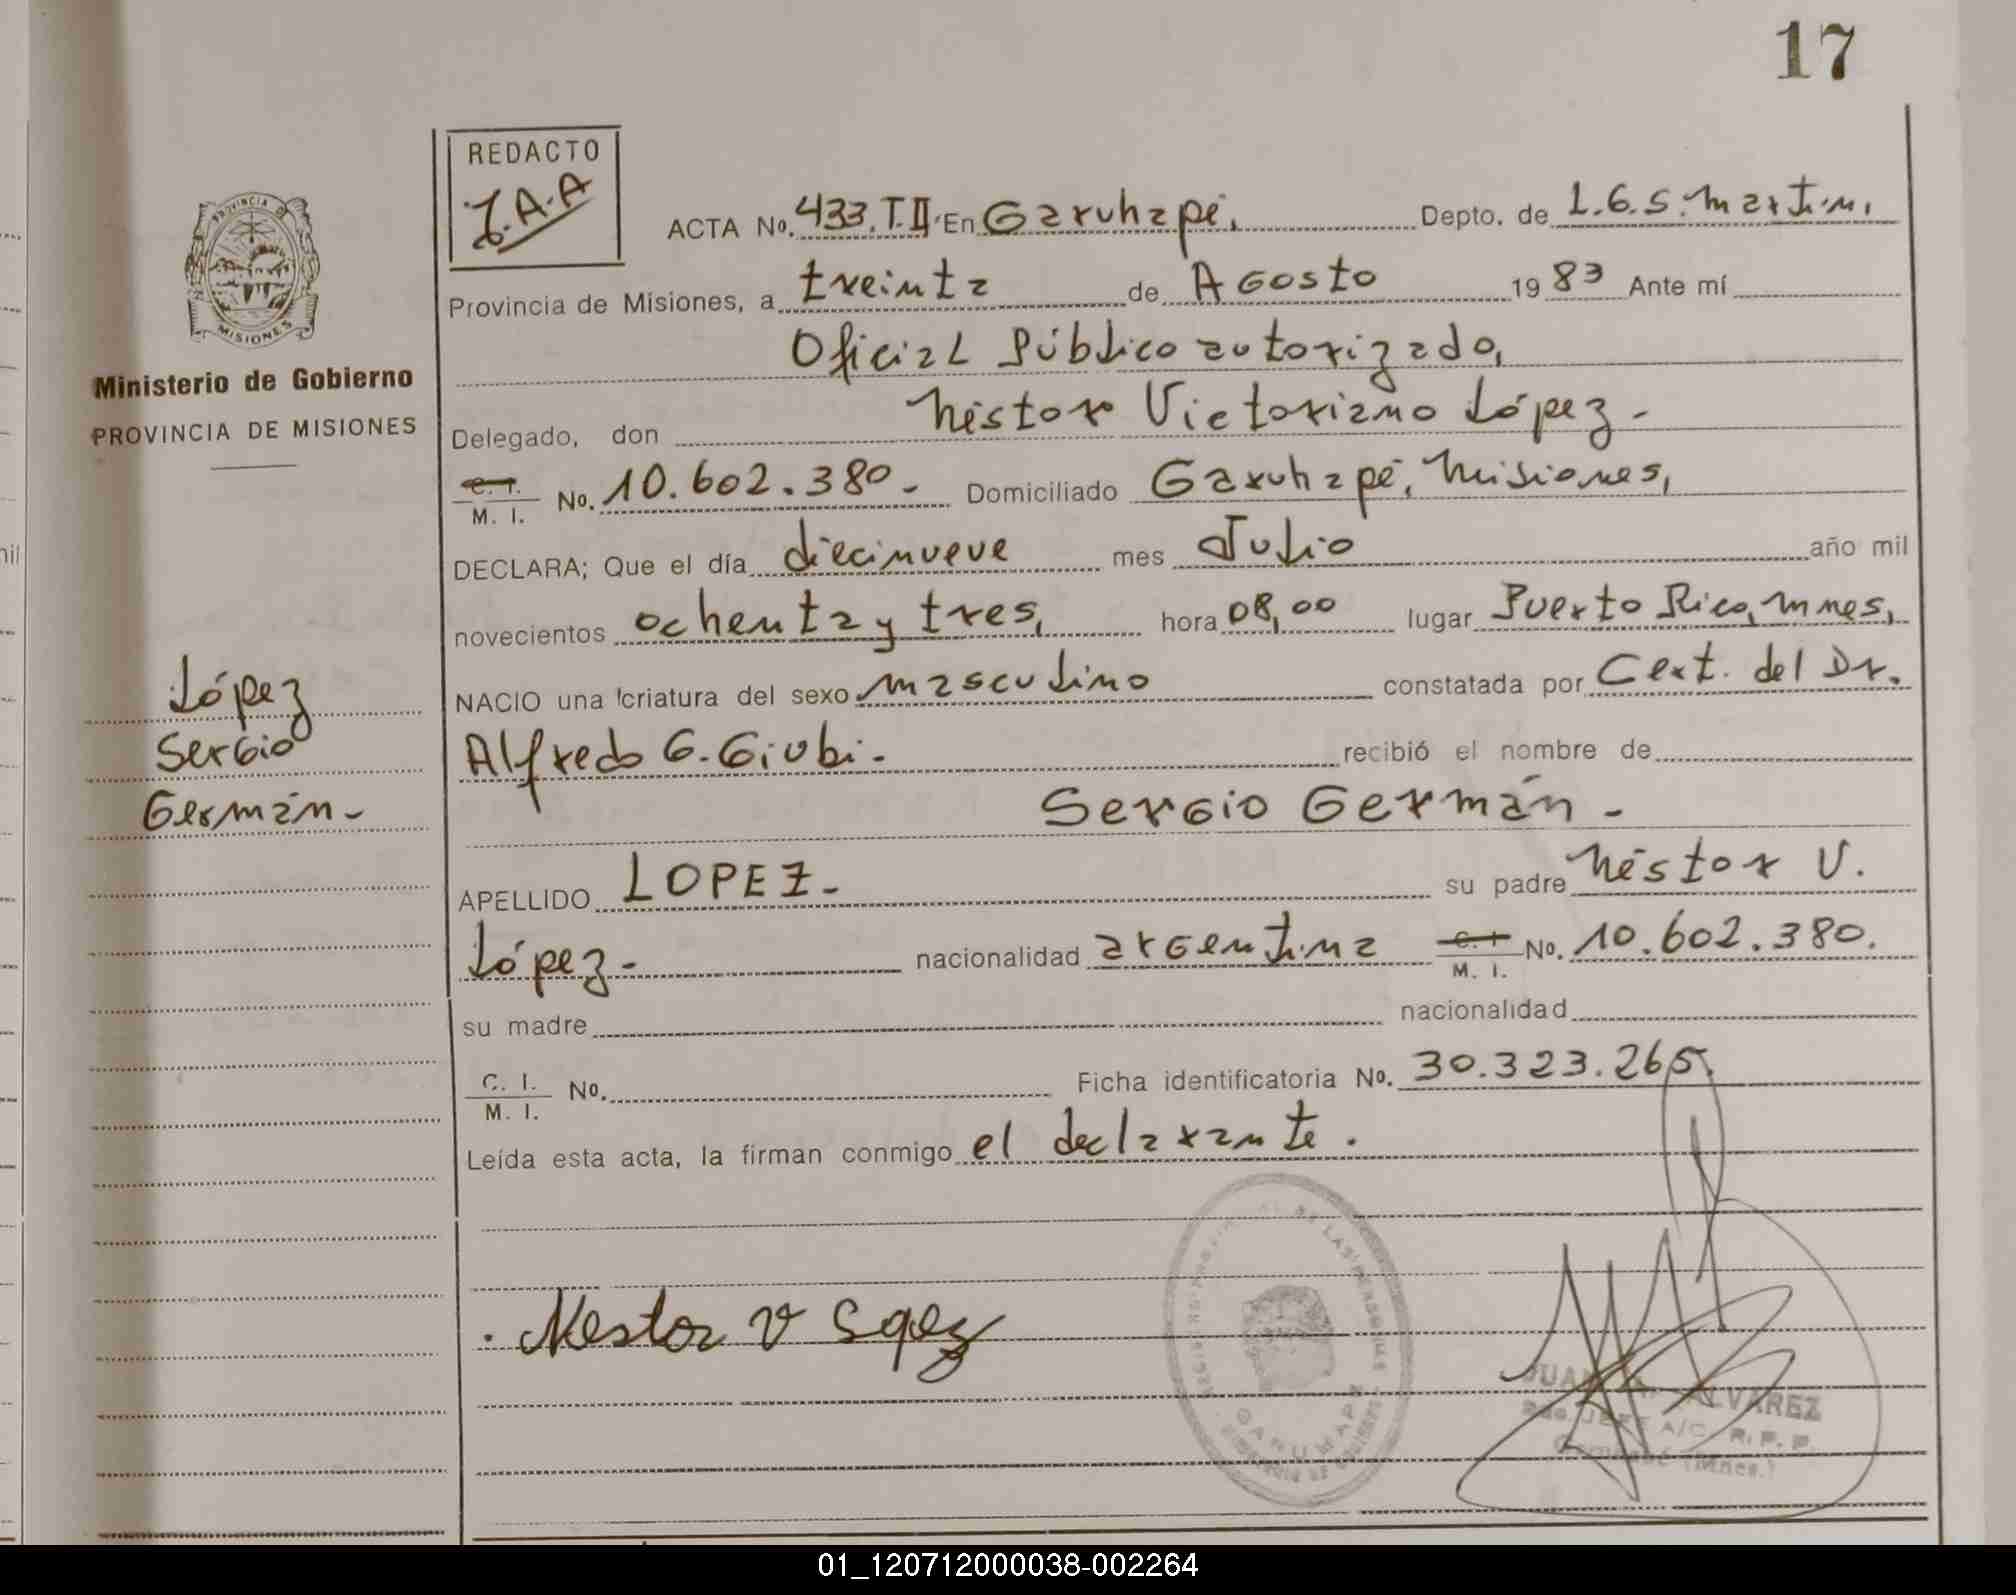 17
REDACTO
J.A.A
PROVINCIA DE
MISIONES
Ministerio de Gobierno
PROVINCIA DE MISIONES
López
Sergio
Germán-
ACTA No. 433.T.II. En Garuhapé, Depto. de L.G.S.Martin,
Provincia de Misiones, a treinta de Agosto 1983 Ante mí
Oficial Público autorizado,
Delegado, don Néstor Victoriano López-
C. I. M. I. No. 10.602.380.- Domiciliado Garuhapé, Misiones,
DECLARA; Que el día diecinueve mes Julio año mil
novecientos ochenta y tres, hora 08,00 lugar Puerto Rico, Mnes,
NACIO una criatura del sexo masculino constatada por Cert. del Dr.
Alfredo G. Giubi.- recibió el nombre de
Sergio Germán-
APELLIDO LOPEZ- su padre Néstor V.
López- nacionalidad argentina C. I. M. I. No. 10.602.380.
su madre nacionalidad
C. I. M. I. No. Ficha identificatoria No. 30.323.265.
Leída esta acta, la firman conmigo el declarante.
Nestor V Lopez
DE LAS PERSONAS
GARUHAPE
JUAN ALVAREZ
JEFE A/C. R. P. P.
(Mnes.)
01_120712000038-002264